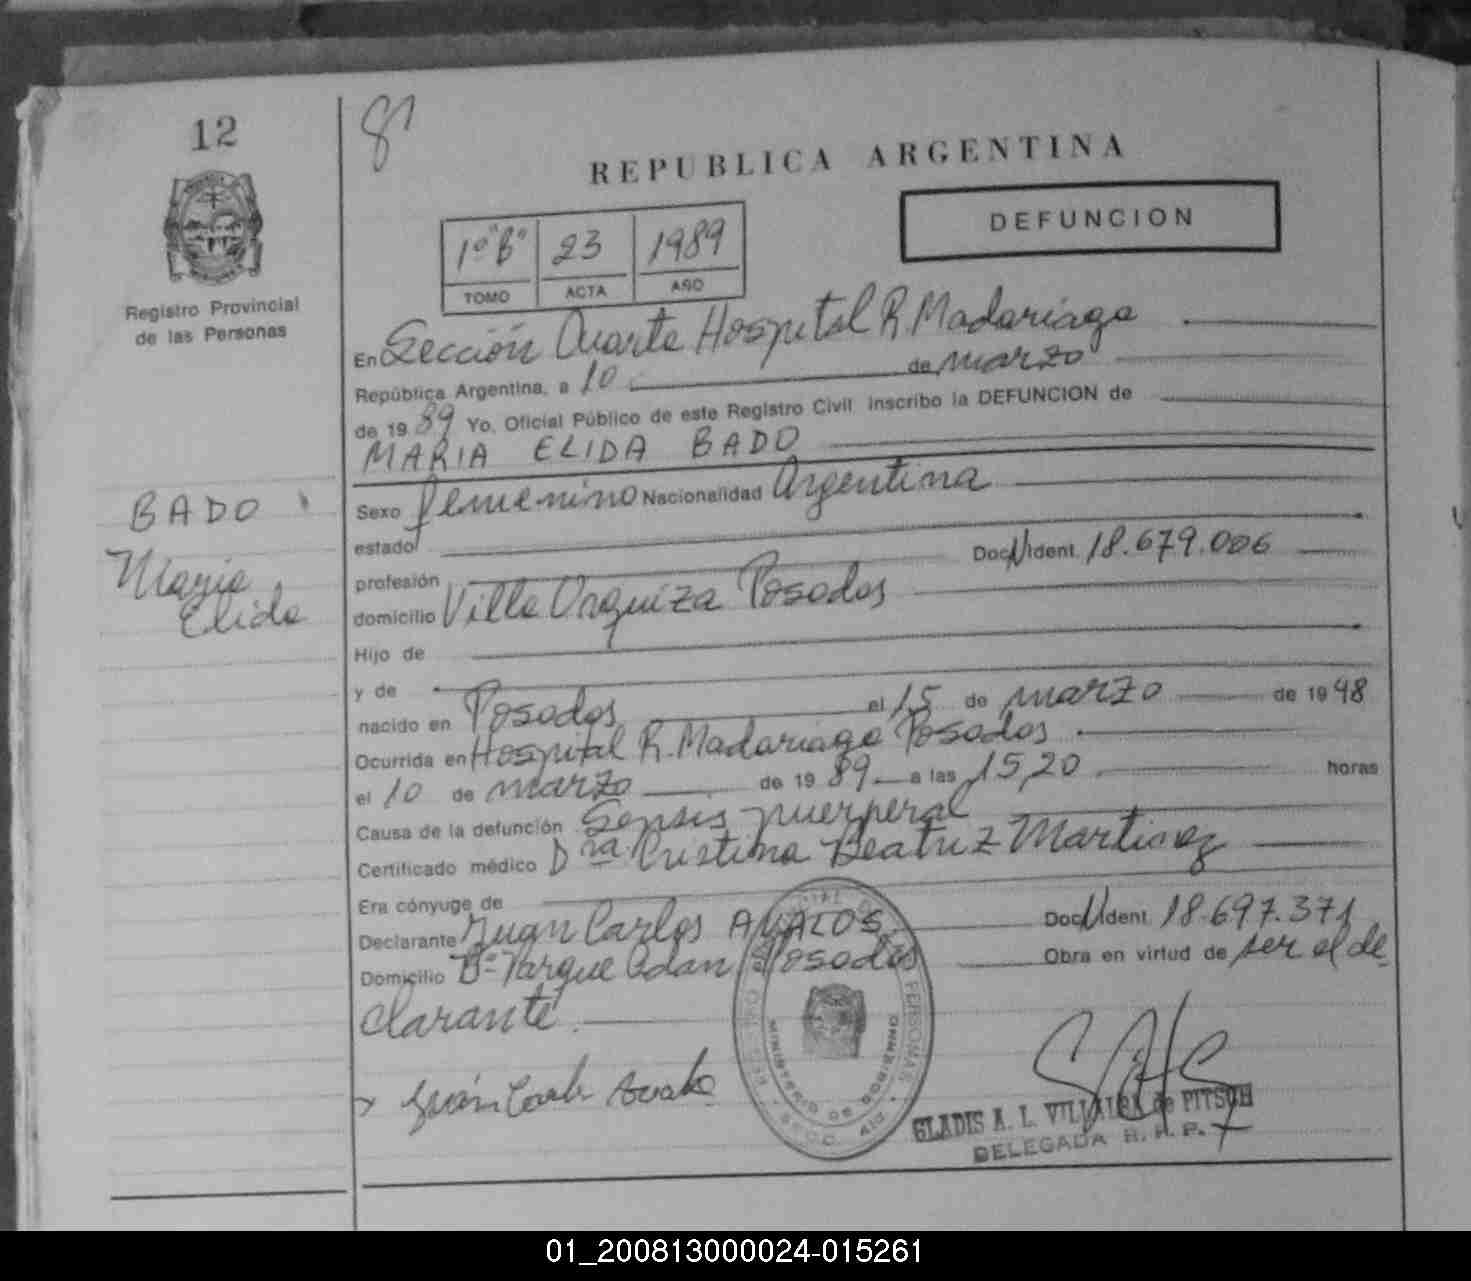 12
81
REPUBLICA ARGENTINA
DEFUNCION
1º "B" 23 1989
TOMO ACTA AÑO
Registro Provincial
de las Personas
En Sección Cuarta Hospital R. Madariaga
República Argentina, a 10 de marzo
de 1989 Yo, Oficial Público de este Registro Civil inscribo la DEFUNCION de
MARIA ELIDA BADO
BADO
Maria
Elida
Sexo femenino Nacionalidad Argentina
estado
profesión Doc. N Ident. 18.679.006
domicilio Villa Urquiza Posadas
Hijo de
y de
nacido en Posadas el 15 de marzo de 1948
Ocurrida en Hospital R. Madariaga Posadas
el 10 de marzo de 1989 a las 15,20 horas
Causa de la defunción Sepsis puerperal
Certificado médico Dra. Cristina Beatriz Martinez
Era cónyuge de
Declarante Juan Carlos AVALOS Doc. N Ident. 18.697.371
Domicilio Bº Parque Adan Posadas Obra en virtud de ser el de-
clarante
Juan Carlos Avalos
MINISTERIO DE GOBIERNO
GLADIS A. L. VILLALBA de PITSCH
DELEGADA R. P. P.
01_200813000024-015261